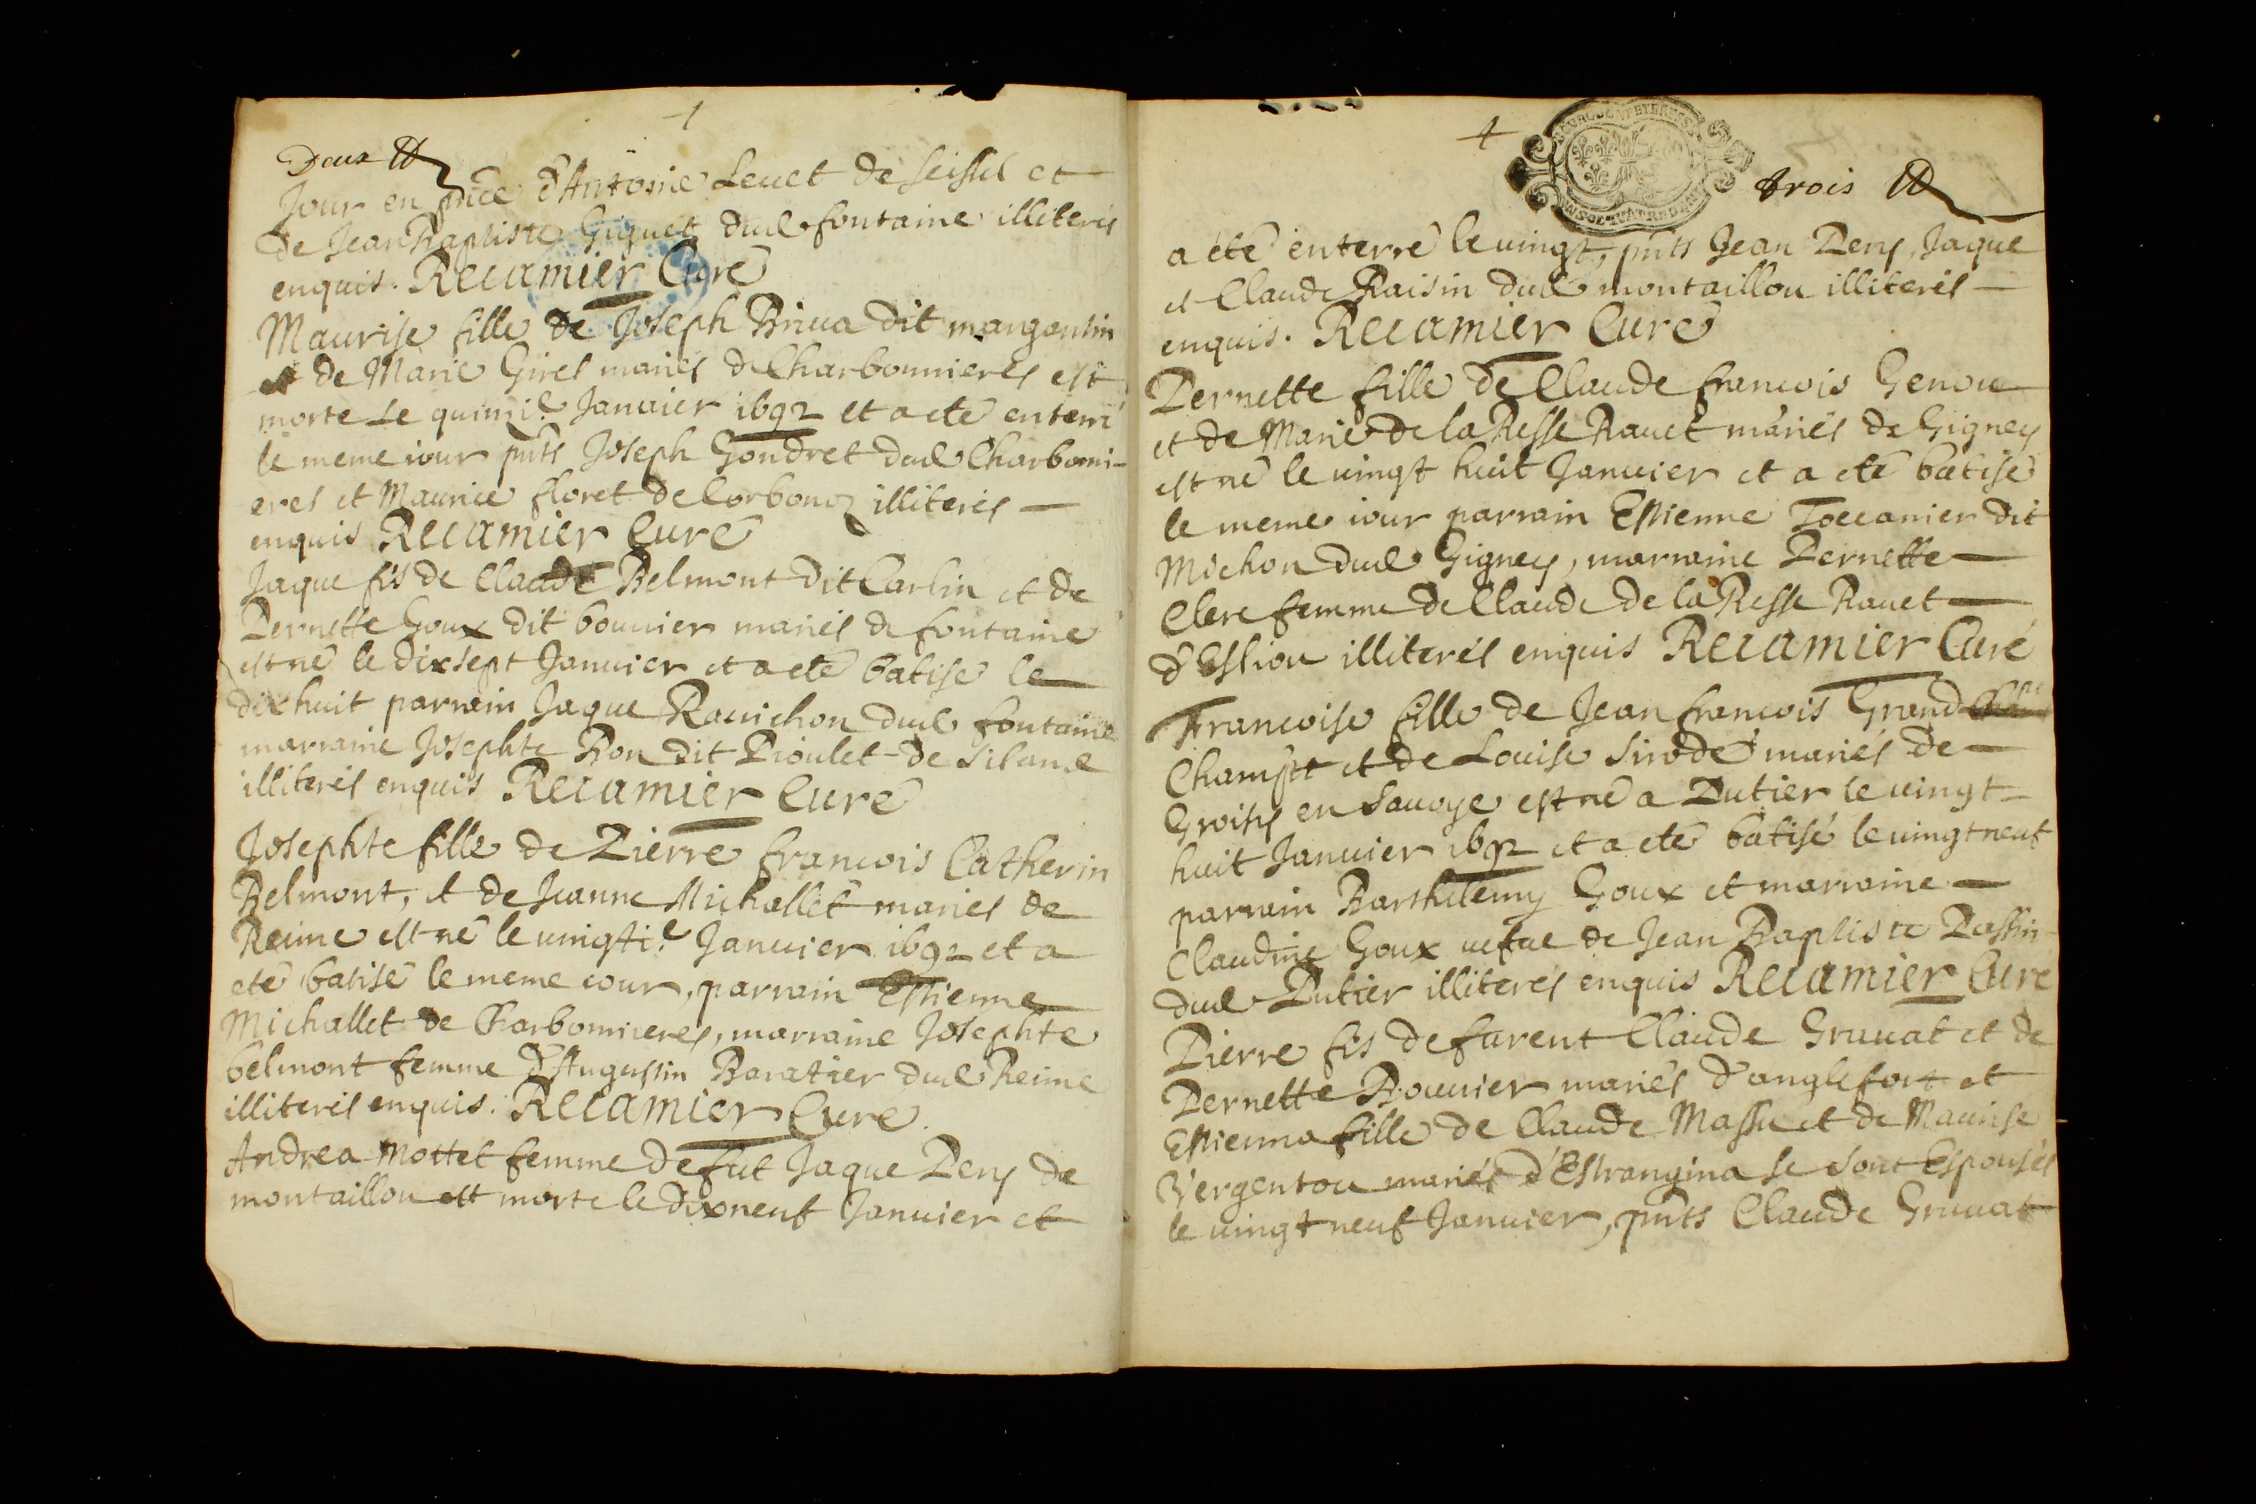 Deux
Jour en pñce d'Antoine Leuet de seissel et
de Jean Baptiste Giguet dud fontaine illiterés
enquis. Recamier Curé
Maurise fille de Joseph Briua dit mangontin
et de Marie Girel mariés de Charbonnieres est
morte Le quinzie Januier 1692 et a eté enterré
le meme iour pñts Joseph Gondret dud Charbonni-
eres et Maurice floret de Corbonoz illiterés
enquis Recamier Curé
Jaque fis de Claude Belmont dit Carlin et de
Pernette Goux dit bouuier mariés de fontaine
est né le dix sept Januier et a eté batisé le
dix huit parrain Jaque Rauichon dud fontaine
marraine Josephte Bon dit Pioulet de Silane
illiterés enquis Recamier Curé
Josephte fille de Pierre francois Catherin
Belmont, et de Jeanne Michallet mariés de
Reime est né le uingtie Januier 1692 et a
eté batisé le meme iour, parrain Estienne
Michallet de Charbonnieres, marraine Josephte
belmont femme d'Augustin Baratier dud Reime
illiterés enquis. Recamier Curé.
Andrea Mottet femme de fut Jaque Peny de
montaillou est morte le dixneuf Januier et
trois
a eté enterré le uingt, pñts Jean Peny, Jaque
et Claude Raisin dud montaillou illiterés
enquis. Recamier Curé
Pernette fille de Claude francois Genou
et de Marie de la Resse Rauet mariés de Gigney
est né le uingt huit Januier et a eté batisé
le meme iour parrain Estienne Toccanier dit
Michon dud Gigney, marraine Pernette
Clerc femme de Claude de la Resse Rauet
d'Esliou illiterés enquis Recamier Curé
Francoise fille de Jean francois Grand
Champt et de Louise Sirode mariés de
Groisy en Sauoye est né a Putier le uingt
huit Januier 1692 et a eté batisé le uingt neuf
parrain Barthelemy Goux et marraine
Claudine Goux uefue de Jean Baptiste Passin
dud Putier illiterés enquis Recamier Curé
Pierre fis defurent Claude Gruuat et de
Pernette Bouuier mariés d'anglefort et
Estienna fille de Claude Massu et de Maurise
Vergentou mariés d'Estrangina se sont Espousés
le uingt neuf Januier, pñts Claude Gruuat